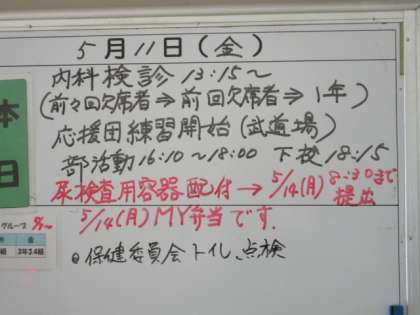 5月11日(金)
内科検診 13:15~
(前々回欠席者⇒前回欠席者⇒1年)
応援団練習開始(武道場)
部活動16:10~18:00 下校18:15
尿検査用容器配付→5/14(月)8:30まで提出
5/14(月)MY弁当です.
●保健委員会トイレ点検
本
日
グループ
金
3年3.4組